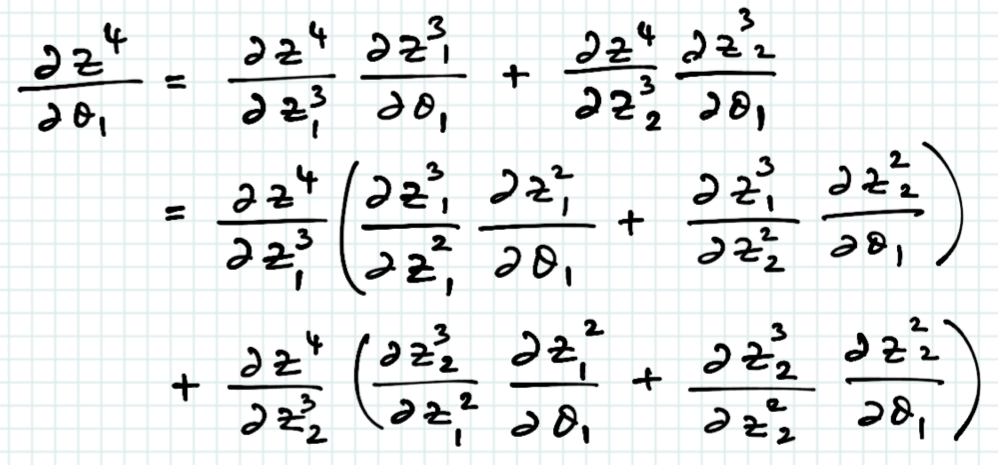 ∂z⁴/∂θ₁ = ∂z⁴/∂z₁³ ∂z₁³/∂θ₁ + ∂z⁴/∂z₂³ ∂z₂³/∂θ₁
= ∂z⁴/∂z₁³ (∂z₁³/∂z₁² ∂z₁²/∂θ₁ + ∂z₁³/∂z₂² ∂z₂²/∂θ₁)
+ ∂z⁴/∂z₂³ (∂z₂³/∂z₁² ∂z₁²/∂θ₁ + ∂z₂³/∂z₂² ∂z₂²/∂θ₁)